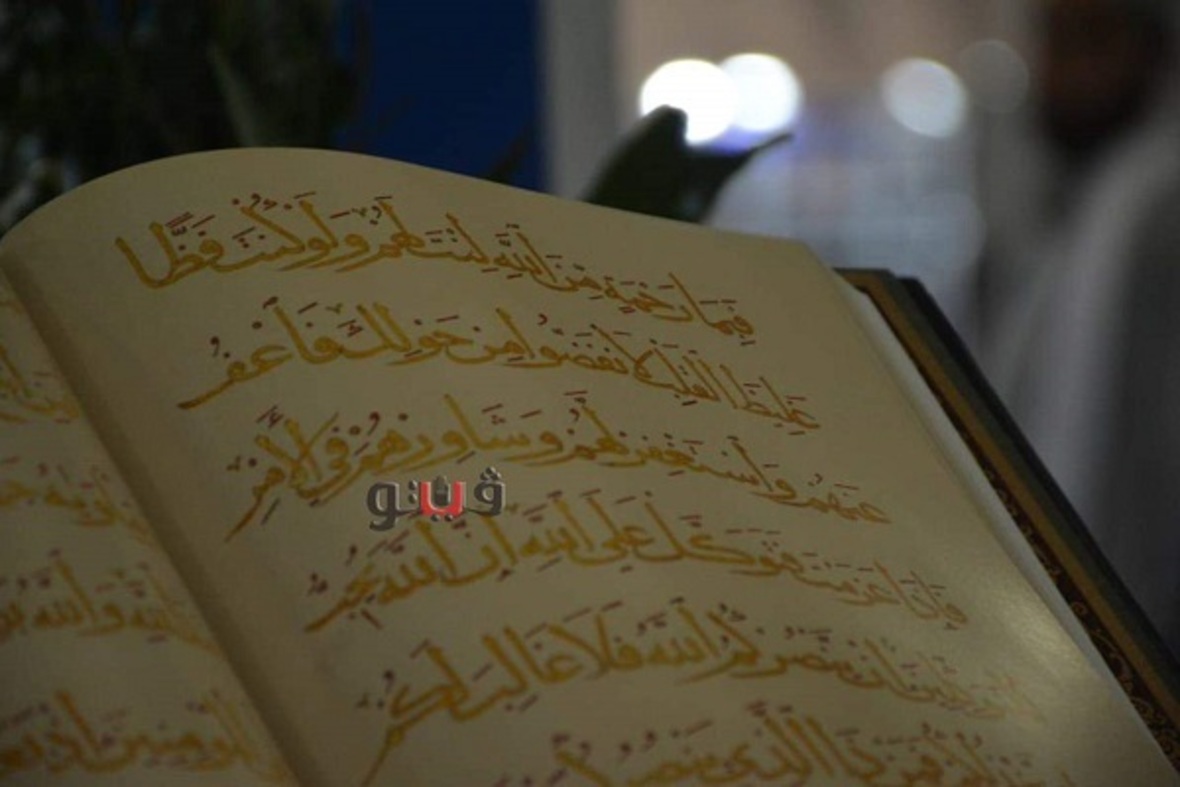 فَبِمَا رَحْمَةٍ مِّنَ اللَّهِ لِنتَ لَهُمْ وَلَوْ كُنتَ فَظًّا
غَلِيظَ الْقَلْبِ لَانفَضُّوا مِنْ حَوْلِكَ فَاعْفُ
عَنْهُمْ وَاسْتَغْفِرْ لَهُمْ وَشَاوِرْهُمْ فِي الْأَمْرِ
ڤيتو
فَإِذَا عَزَمْتَ فَتَوَكَّلْ عَلَى اللَّهِ إِنَّ اللَّهَ يُحِبُّ
إِن يَنصُرْكُمُ اللَّهُ فَلَا غَالِبَ لَكُمْ
فَمَن ذَا الَّذِي
وَاللَّهُ